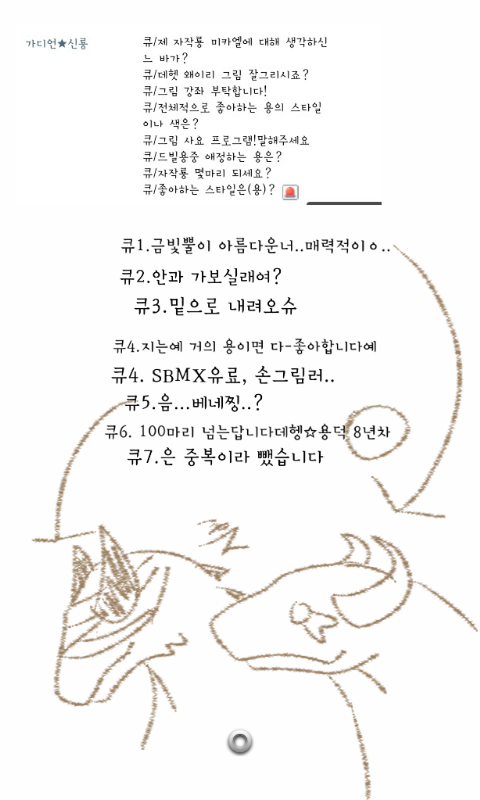 가디언★신룡
큐/제 자작룡 미카엘에 대해 생각하신
느 바가?
큐/데헷 왜이리 그림 잘그리시죠?
큐/그림 강좌 부탁합니다!
큐/전체적으로 좋아하는 용의 스타일
이나 색은?
큐/그림 사요 프로그램!말해주세요
큐/드빌용중 애정하는 용은?
큐/자작룡 몇마리 되세요?
큐/좋아하는 스타일은(용)?
큐1.금빛뿔이 아름다운너..매력적이ㅇ..
큐2.안과 가보실래여?
큐3.밑으로 내려오슈
큐4.지는예 거의 용이면 다-좋아합니다예
큐4. SBMX유료, 손그림러..
큐5.음...베네찡..?
큐6. 100마리 넘는답니다데헹☆용덕 8년차
큐7.은 중복이라 뺐습니다